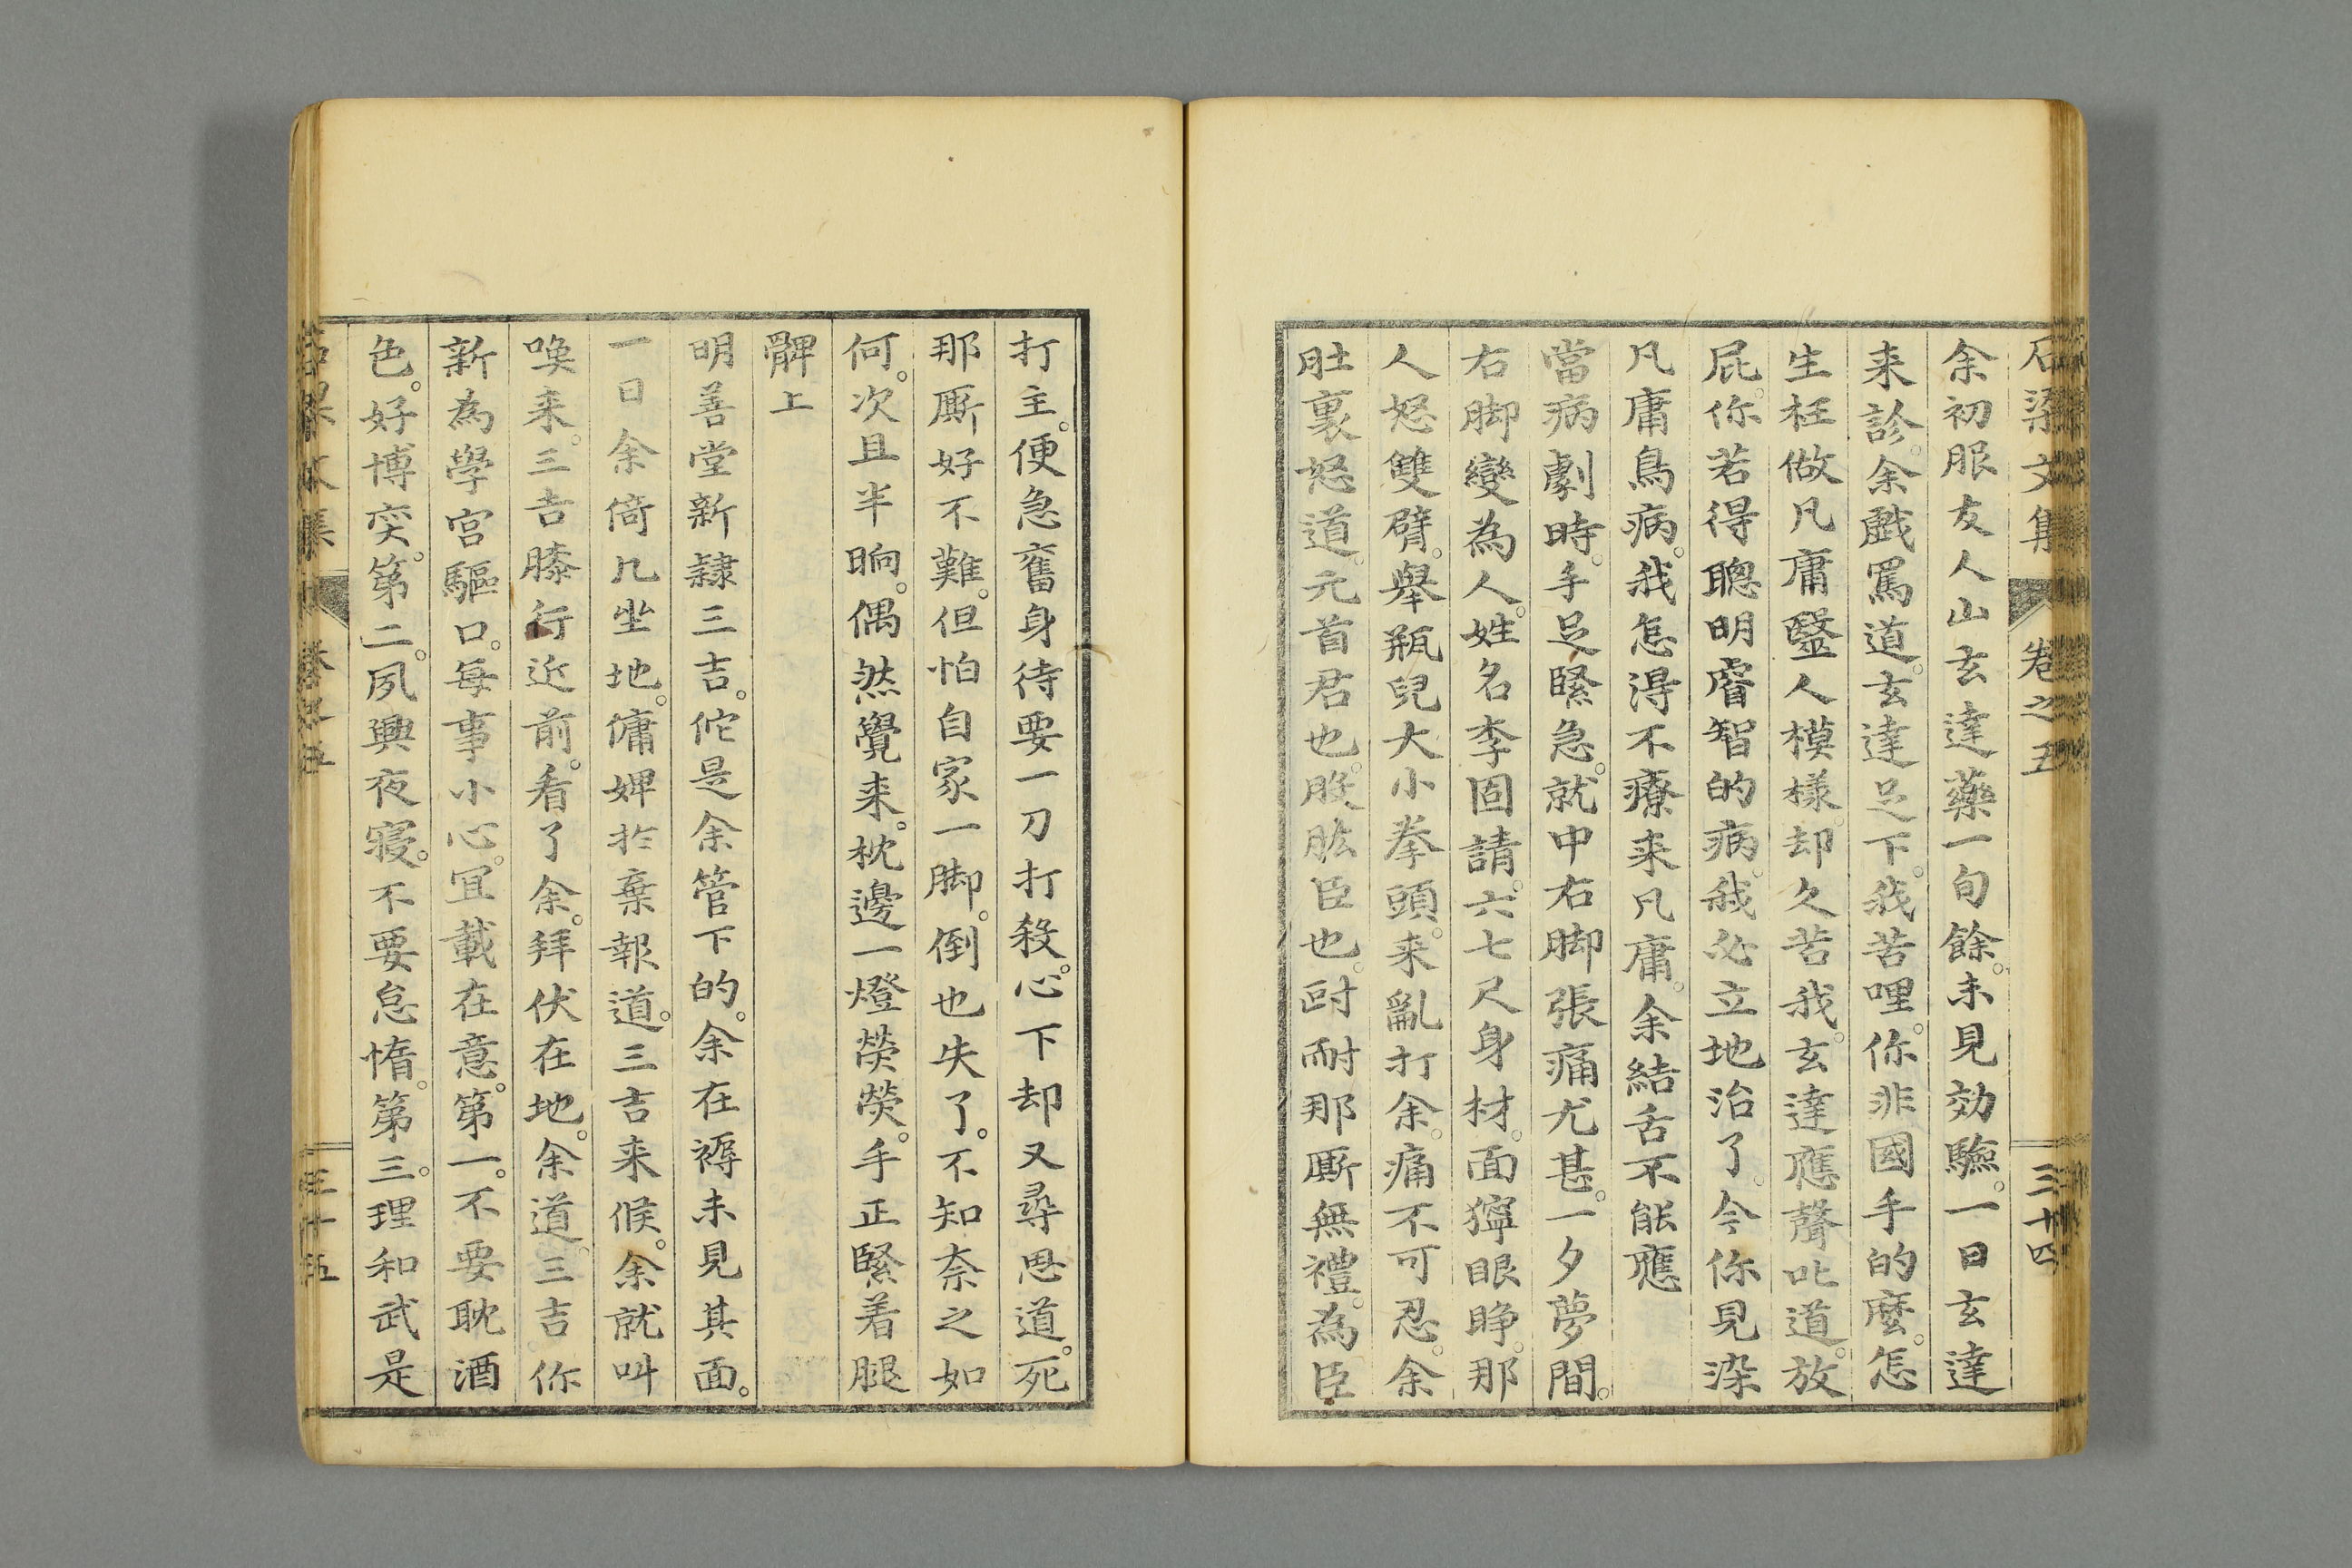 石梁文集 卷之五 三十四
余初服友人山玄達藥一旬餘。未見効驗。一日玄達
来診。余戲罵道。玄達足下。我苦哩。你非國手的麼。怎
生枉做凡庸毉人模樣。却久苦我。玄達應聲叱道。放
屁。你若得聰明睿智的病。我必立地治了。今你見染
凡庸鳥病。我怎得不療来凡庸。余結舌不能應
當病劇時。手足緊急。就中右脚張痛尤甚。一夕夢間。
右脚變為人。姓名李固請。六七尺身材。面獰眼睁。那
人怒雙臂。舉瓶兒大小拳頭。来亂打余。痛不可忍。余
肚裏怒道。元首君也。股肱臣也。尀耐那厮無禮。為臣
打主。便急奮身待要一刀打殺。心下却又尋思道。死
那厮好不難。但怕自家一脚。倒也失了。不知奈之如
何。次且半晌。偶然覺来。枕邊一燈熒熒。手正緊着腿
髀上
明善堂新隷三吉。佗是余管下的。余在褥未見其面。
一日余倚几坐地。傭婢扵棄報道。三吉来候。余就叫
喚来。三吉膝行近前。看了余。拜伏在地。余道。三吉。你
新為學宮驅口。每事小心。冝載在意。第一。不要耽酒
色。好博奕。第二。夙興夜寝。不要怠惰。第三。理和武是
卷之五 三十五